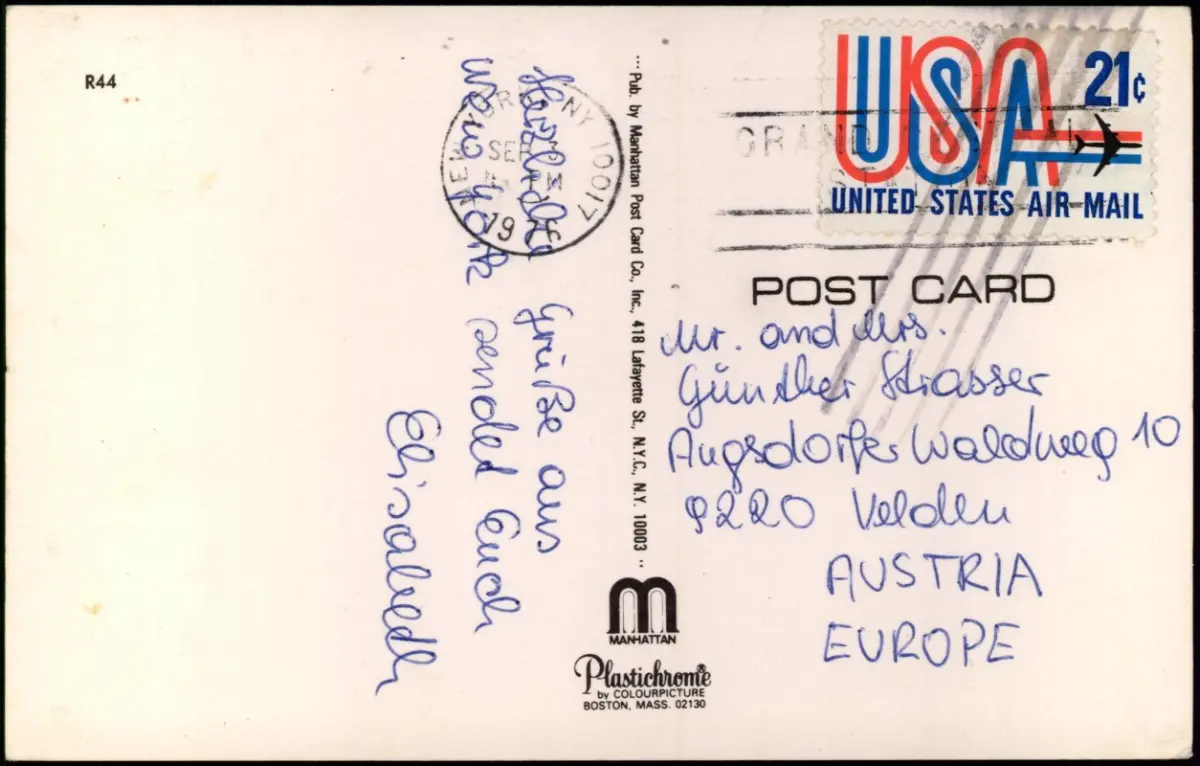 R44
Herzliche Grüße aus
New York sendet Euch
Elisabeth
NEW YORK, NY 10017
SEP
PM
19
... Pub. by Manhattan Post Card Co., Inc., 418 Lafayette St., N.Y.C., N.Y. 10003 ..
MANHATTAN
Plastichrome®
by COLOURPICTURE
BOSTON, MASS. 02130
USA 21¢
UNITED STATES AIR MAIL
GRAND CENTRAL
STATION
POST CARD
Mr. and Mrs.
Günther Strasser
Augsdorfer Waldweg 10
9220 Velden
AUSTRIA
EUROPE